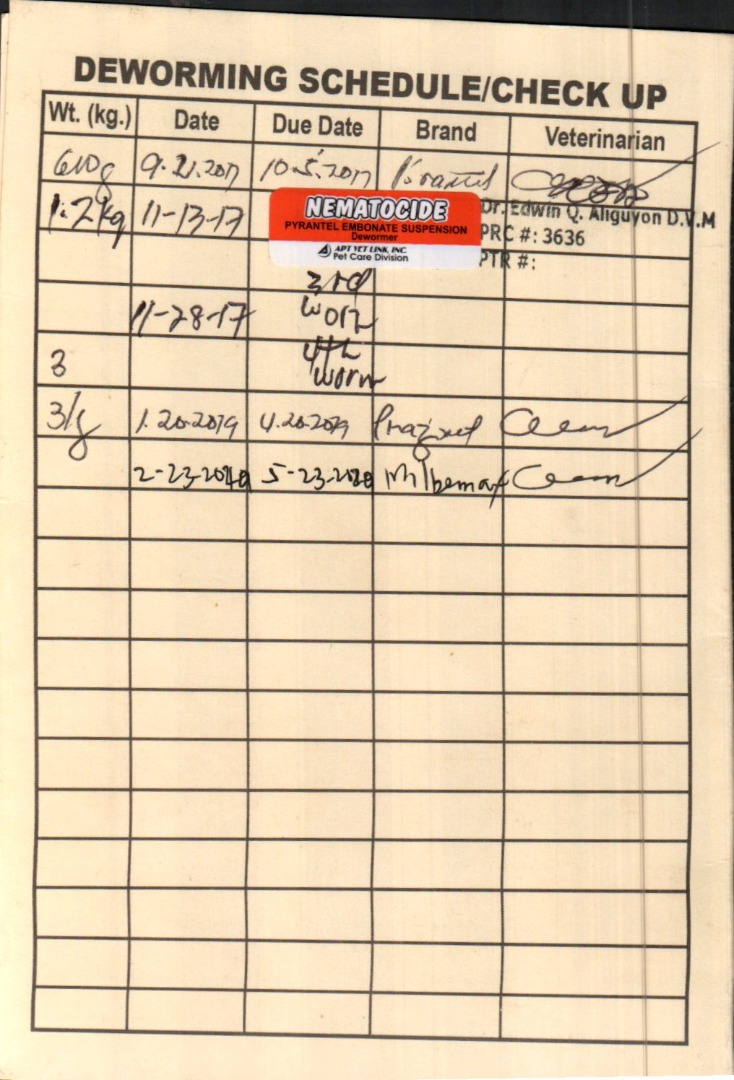 DEWORMING SCHEDULE/CHECK UP
Wt. (kg.) Date Due Date Brand Veterinarian
610g 9.21.2017 10.5.2017
1.2kg 11-13-17
NEMATOCIDE
PYRANTEL EMBONATE SUSPENSION
Dewormer
APT VET LINK, INC.
Pet Care Division
Dr. Edwin Q. Aliguyon D.V.M
PRC #: 3636
PTR #:
3rd
11-28-17 worm
4th
3 worm
1.20.2019 4.20.2019
2-23-2020 5-23-2020 Milbemax